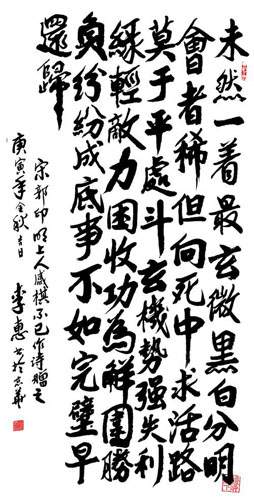 未然一着最玄微黑白分明
會者稀但向死中求活路
莫于平處斗玄機勢强失利
緣輕敵力困收功為解圍勝
負紛紛成底事不如完璧早
還歸
宋郭印明上人感棋不已作诗贈之
庚寅年金秋吉日 李惠书於京華